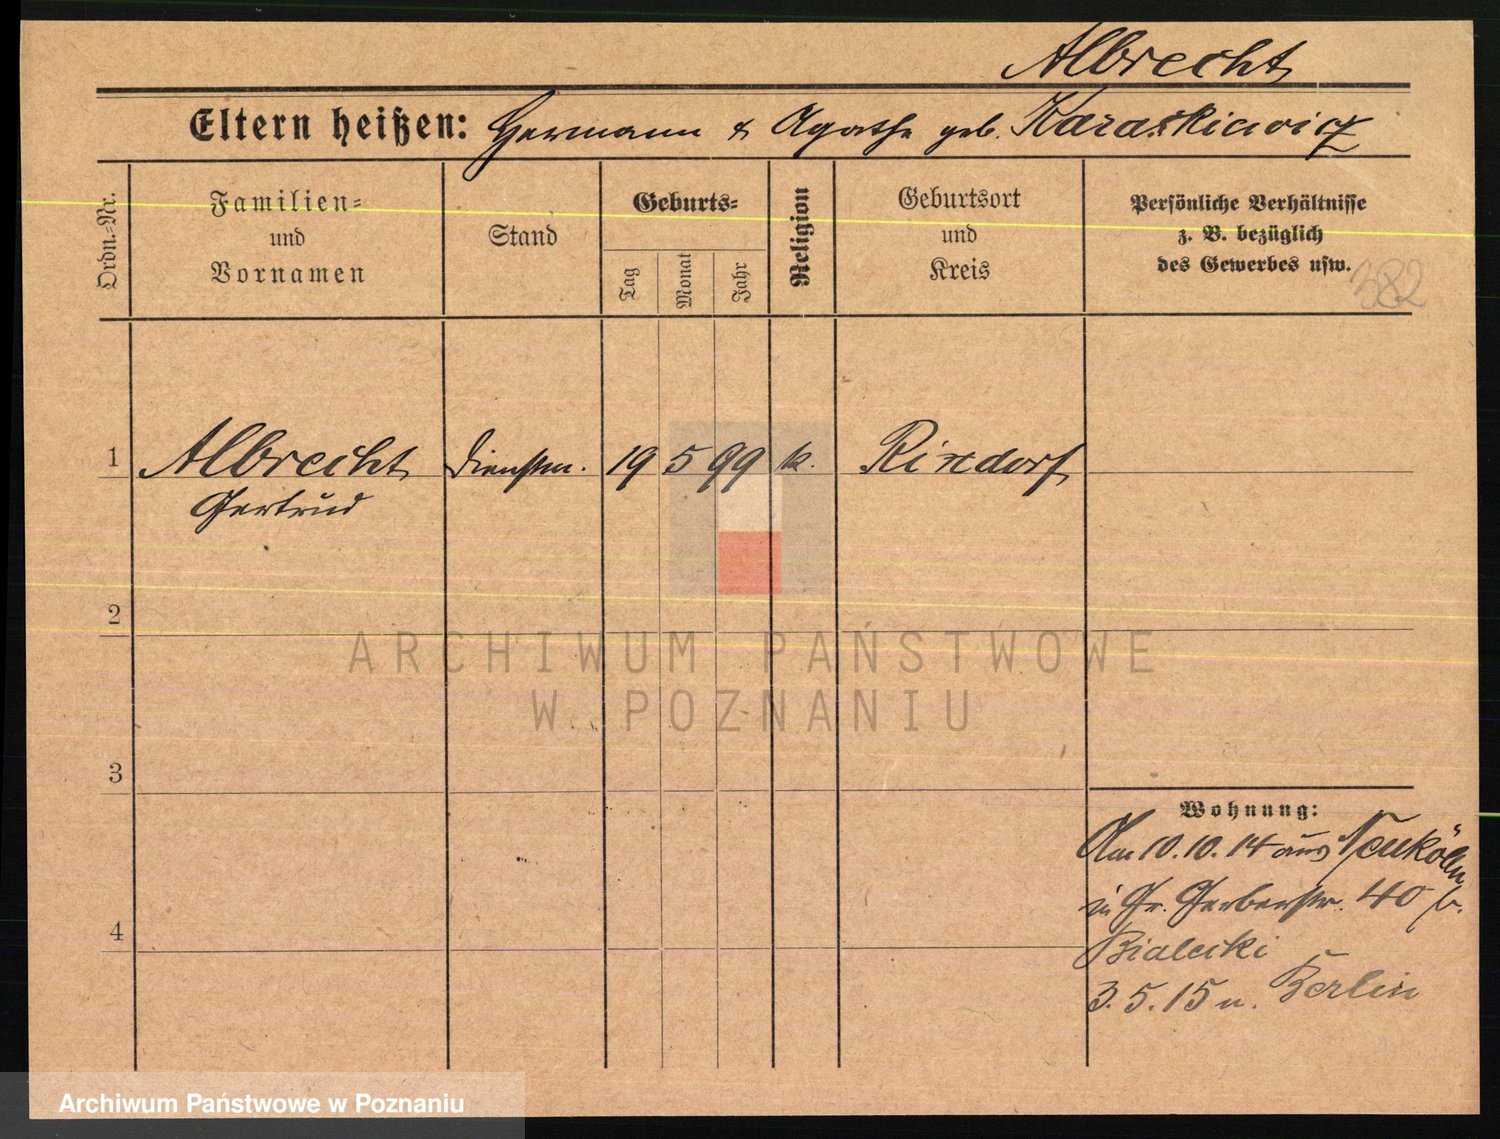 Albrecht
Eltern heißen: Hermann & Agathe geb. Karaskiewicz
Ordn.-Nr.
Familien=
und
Vornamen
Stand
Geburts=
Tag
Monat
Jahr
Religion
Geburtsort
und
Kreis
Persönliche Verhältnisse
z. B. bezüglich
des Gewerbes usw.
382
1 Albrecht Dienstm. 19 5 99 k. Rixdorf
Gertrud
2
ARCHIWUM PAŃSTWOWE
W POZNANIU
3
Wohnung:
Am 10.10.14 aus Neukölln
in Gr. Gerberstr. 40 b.
4
Bialecki
3.5.15 n. Berlin
Archiwum Państwowe w Poznaniu